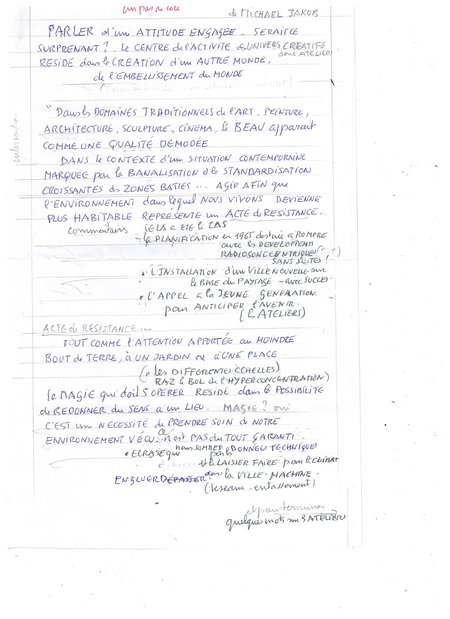 un pas de côté
de MICHAEL JAKOB
PARLER d'une ATTITUDE ENGAGÉE - SERAIT CE
SURPRENANT? - le CENTRE de l'ACTIVITÉ de UNIVERS CREATIFS
RESIDE dans le CREATION d'un AUTRE MONDE.
de l'EMBELLISSEMENT du MONDE
"Dans les DOMAINES TRADITIONNELS de l'ART - PEINTURE,
ARCHITECTURE, SCULPTURE, CINEMA - le BEAU apparait
COMME UNE QUALITÉ DÉMODÉE
DANS le CONTEXTE d'un SITUATION CONTEMPORAINE
MARQUEE par la BANALISATION et le STANDARDISATION
CROISSANTES des ZONES BATIES... AGIR AFIN que
l'ENVIRONNEMENT dans lequel NOUS VIVONS DEVIENNE
PLUS HABITABLE REPRESENTE un ACTE de RESISTANCE..
commentaires CELA A ETE le CAS
- la PLANIFICATION en 1965 destinée a ROMPRE
avec les DEVELOPPEMENTS
RADIOCONCENTRIQUES
SANS SUITES!
• L'INSTALLATION d'un VILLE NOUVELLE sur
le BASE du PAYSAGE - avec SUCCES
• L'APPEL a la JEUNE GENERATION
pour ANTICIPER l'AVENIR.
(les ATELIERS)
ACTE de RESISTANCE...
TOUT COMME l'ATTENTION APPORTÉE au MOINDRE
BOUT de TERRE, à UN JARDIN ou à UNE PLACE
(• les DIFFERENTES ECHELLES)
RAZ le BOL de l'HYPERCONCENTRATION)
la MAGIE qui doit S'OPERER RESIDE dans le POSSIBILITE
de REDONNER du SENS a un LIEU. MAGIE? oui
C'EST un NECESSITÉ de PRENDRE SOIN de NOTRE
ENVIRONNEMENT VÉCU - ce n'est PAS du TOUT GARANTI.
• ECRASE que nous SOMMES par les DONNEES TECHNIQUES
et le LAISSER FAIRE pour le CLIMAT
dans la VILLE-MACHINE
(reseaux - entassement)
et pour terminer
quelques mots sur l'ATELIER